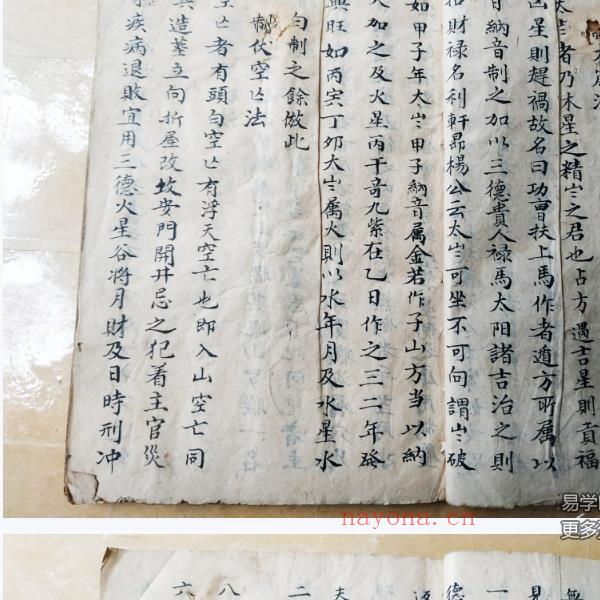 太岁者乃木星之精岁之君也占方遇吉星則貢福
凶星則趕禍故名曰功曹扶上馬作者遁方所属以
日納音制之加以三德貴人禄馬太阳諸吉治之則
招財禄名利軒昻楊公云太岁可坐不可向謂岁破
如甲子年太岁甲子納音属金若作子山方當以納
火加之及火星丙丁奇九紫在乙日作之三二年發
興旺如丙寅丁卯太岁属火則以水年月及水星水
日制之餘倣此
制伏空亡法
空亡者有頭白空亡有浮天空亡也即入山空亡同
造塟立向折屋改坟安門開井忌之犯着主官災
疾病退敗宜用三德火星谷将月財及日時刑冲
nayona.cn
易学
更多
無
見
一
德
夫
二
八
六